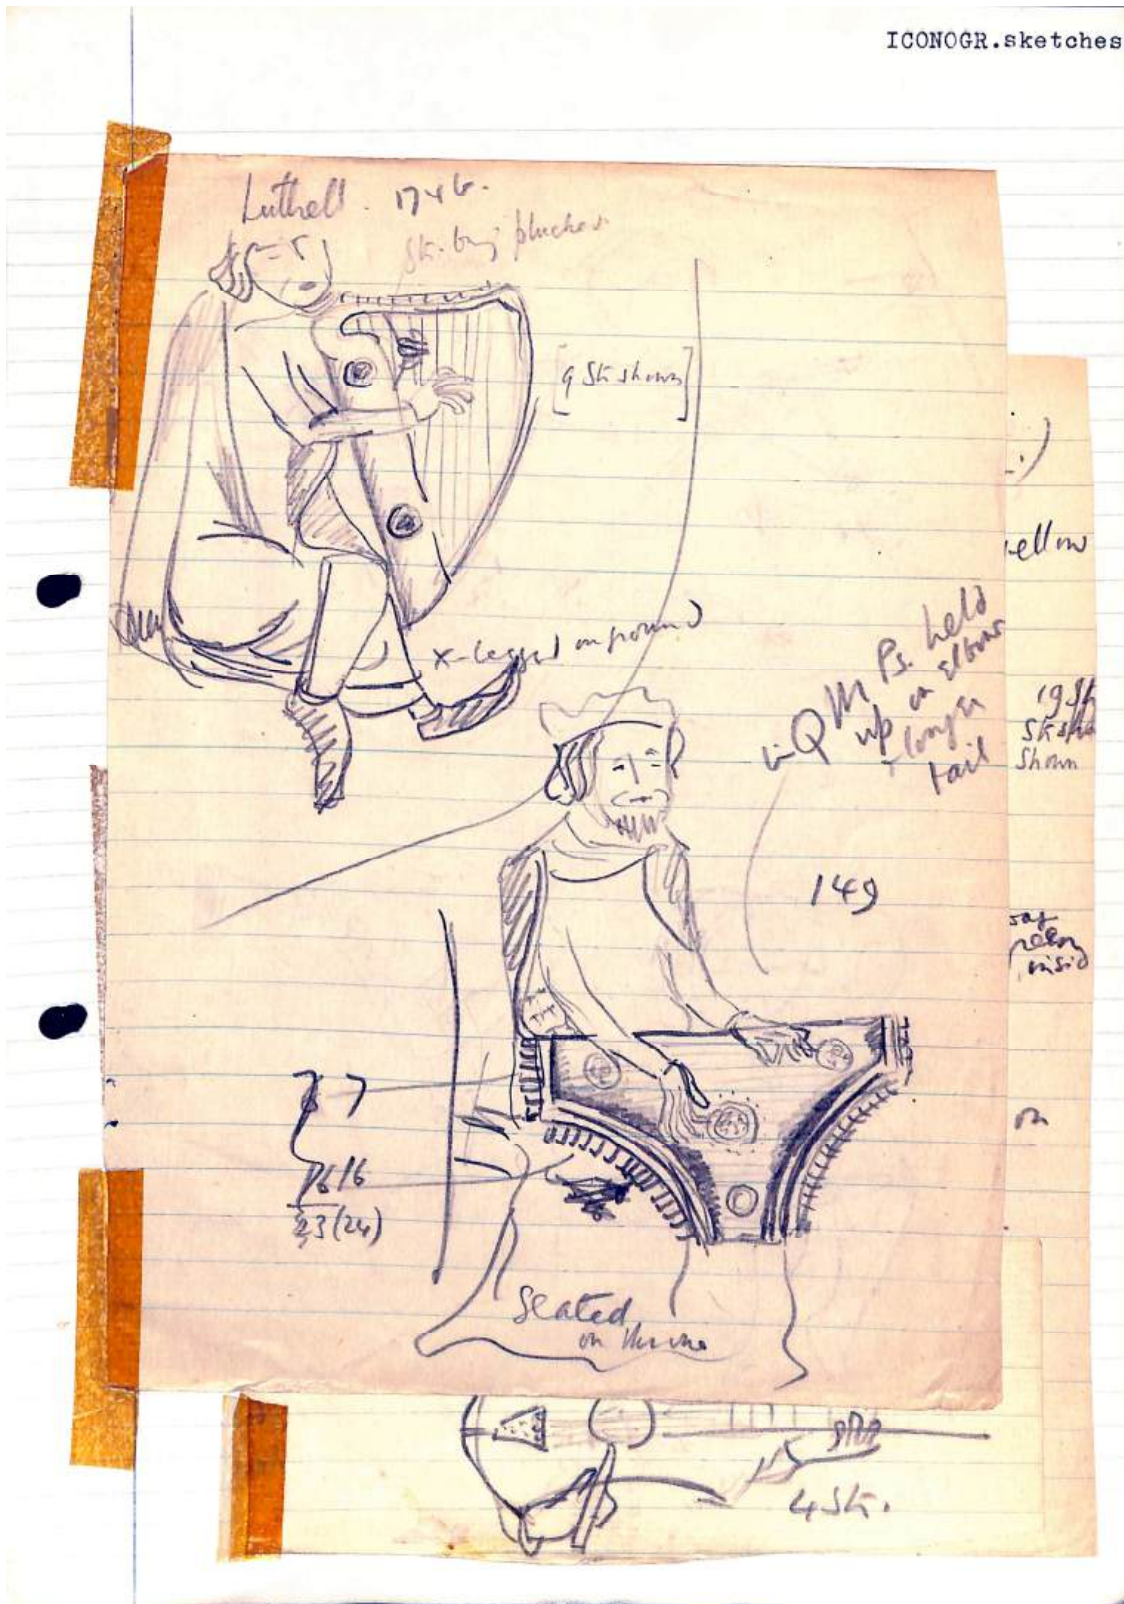 ICONOGR.sketches
Luttrell. 174b.
Str. being plucked
[9 Str shown]
X-legged on ground
in QM Ps. held
up on elbow
+ longer
tail
149
7
16
23(24)
Seated
on throne
ellow
19 Str
Shown
on
4 Str.